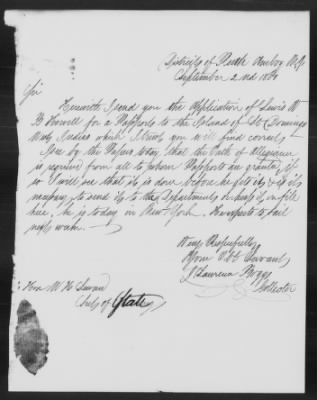 District of Perth Amboy N.J.
September 2nd 186
Sir
Herewith I send you the Application of Lewis W
B. Howell for a Passport to the Island of St. Domingo
West Indies which I trust you will find correct
I see by the Papers today, that the Oath of Allegiance
is required from all to whom Passports are granted, if
so I will see that it is done before he gets it, & if it is
necessary, to send it to the Department, or keep it on file
here, he is today in New York. He expects to sail
next week.
Very Respectfully
Your Obt Servant
J Lawrence Boggs
Collector
Hon. W H Seward
Secty of State